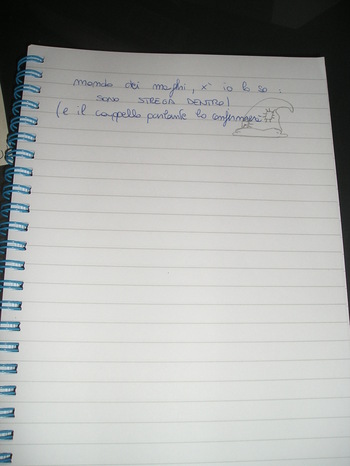 mondo dei maghi, x' io lo so:
SONO STREGA DENTRO!
(e il cappello parlante lo confermerà